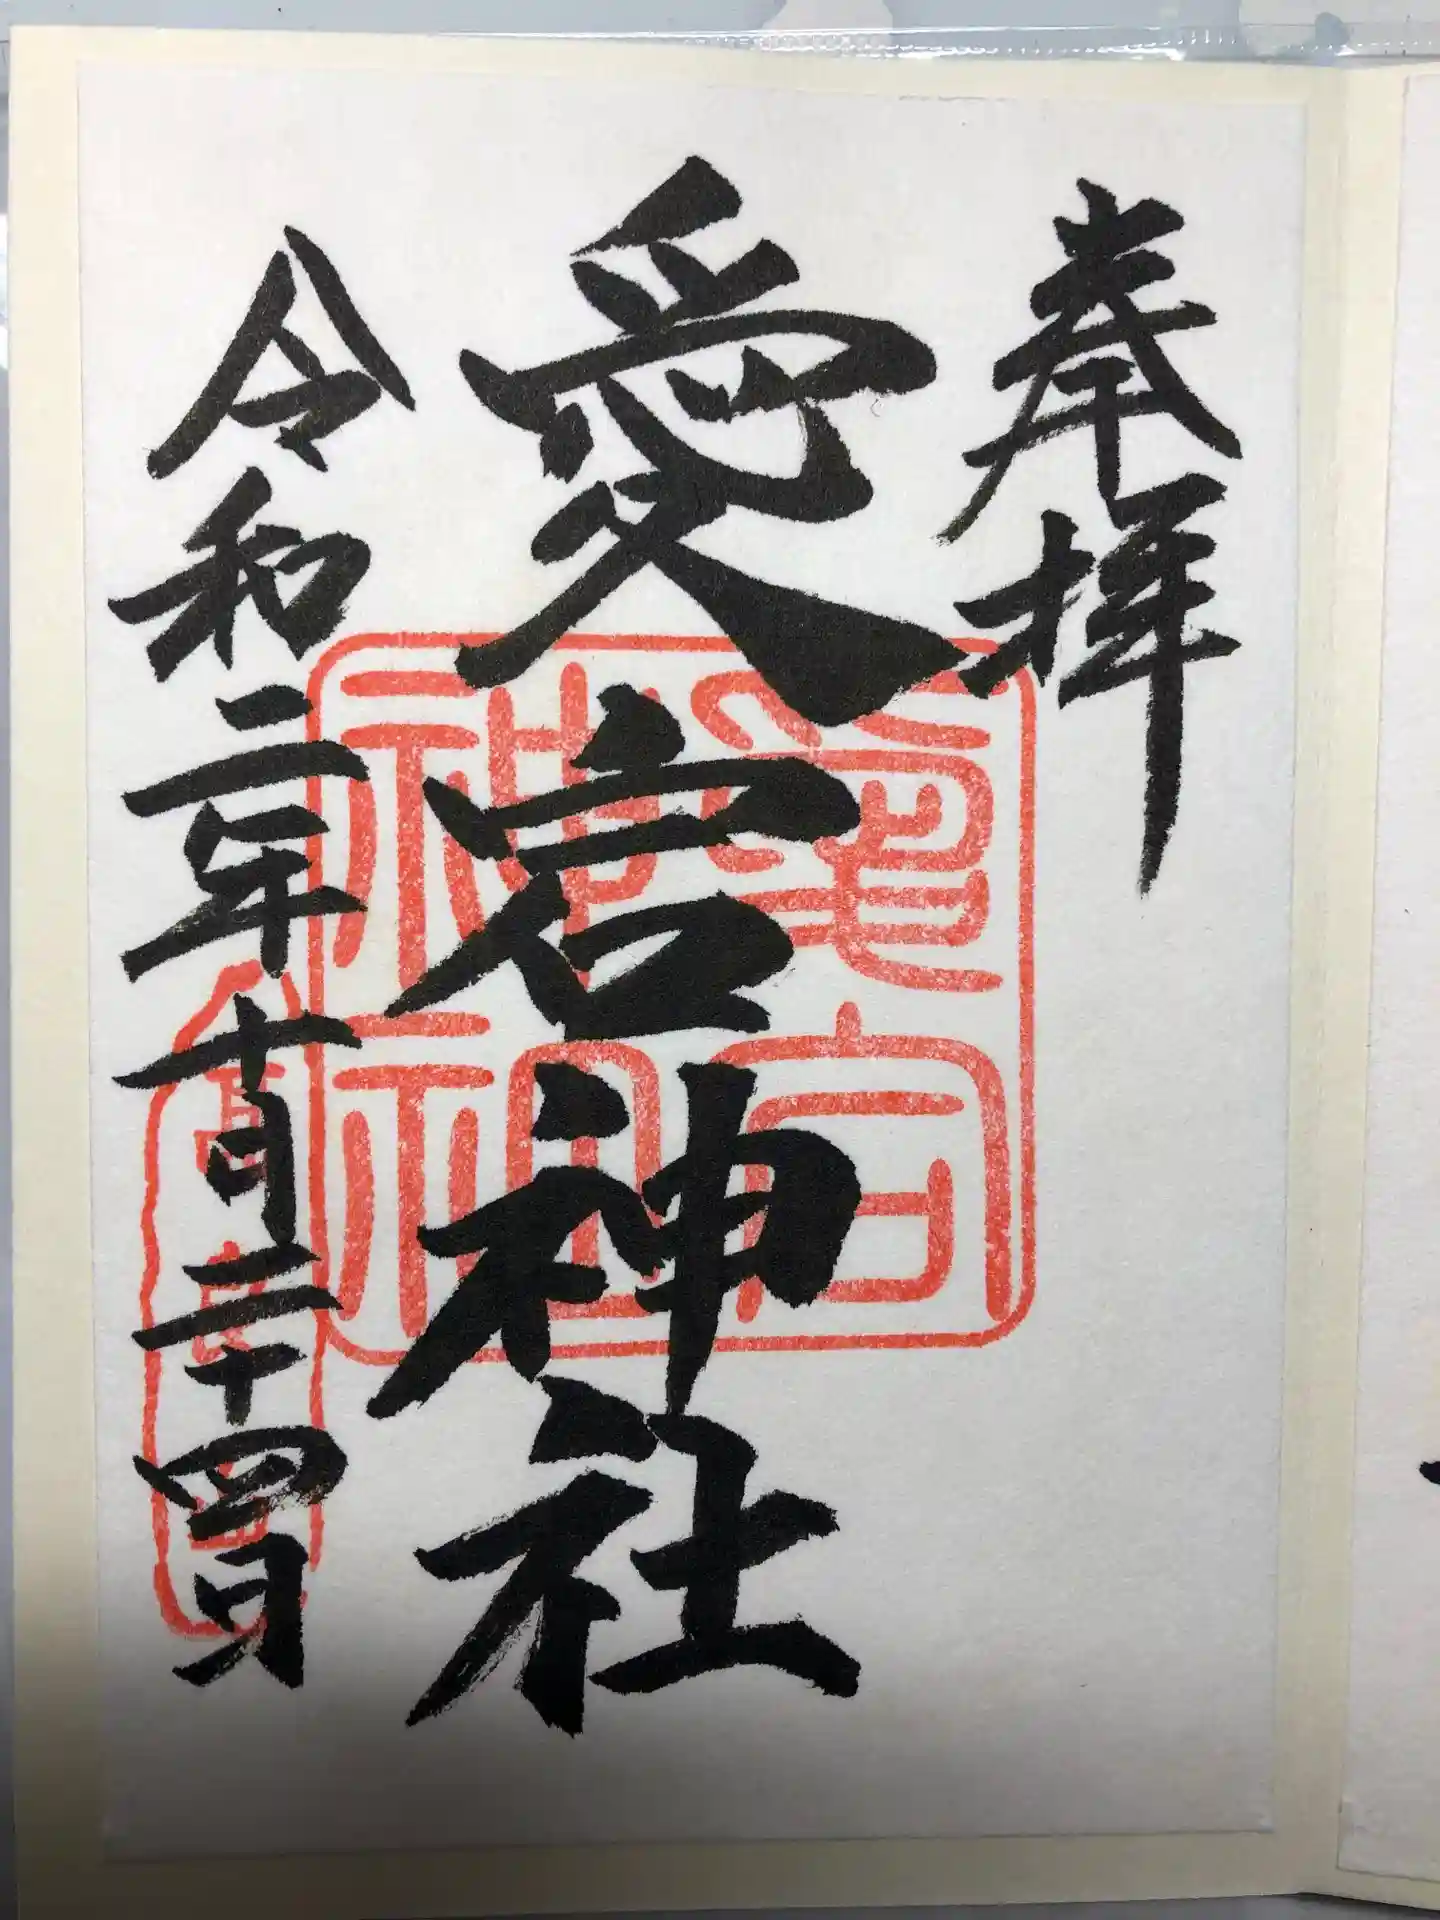 奉拝
愛宕神社
令和二年十月二十四日